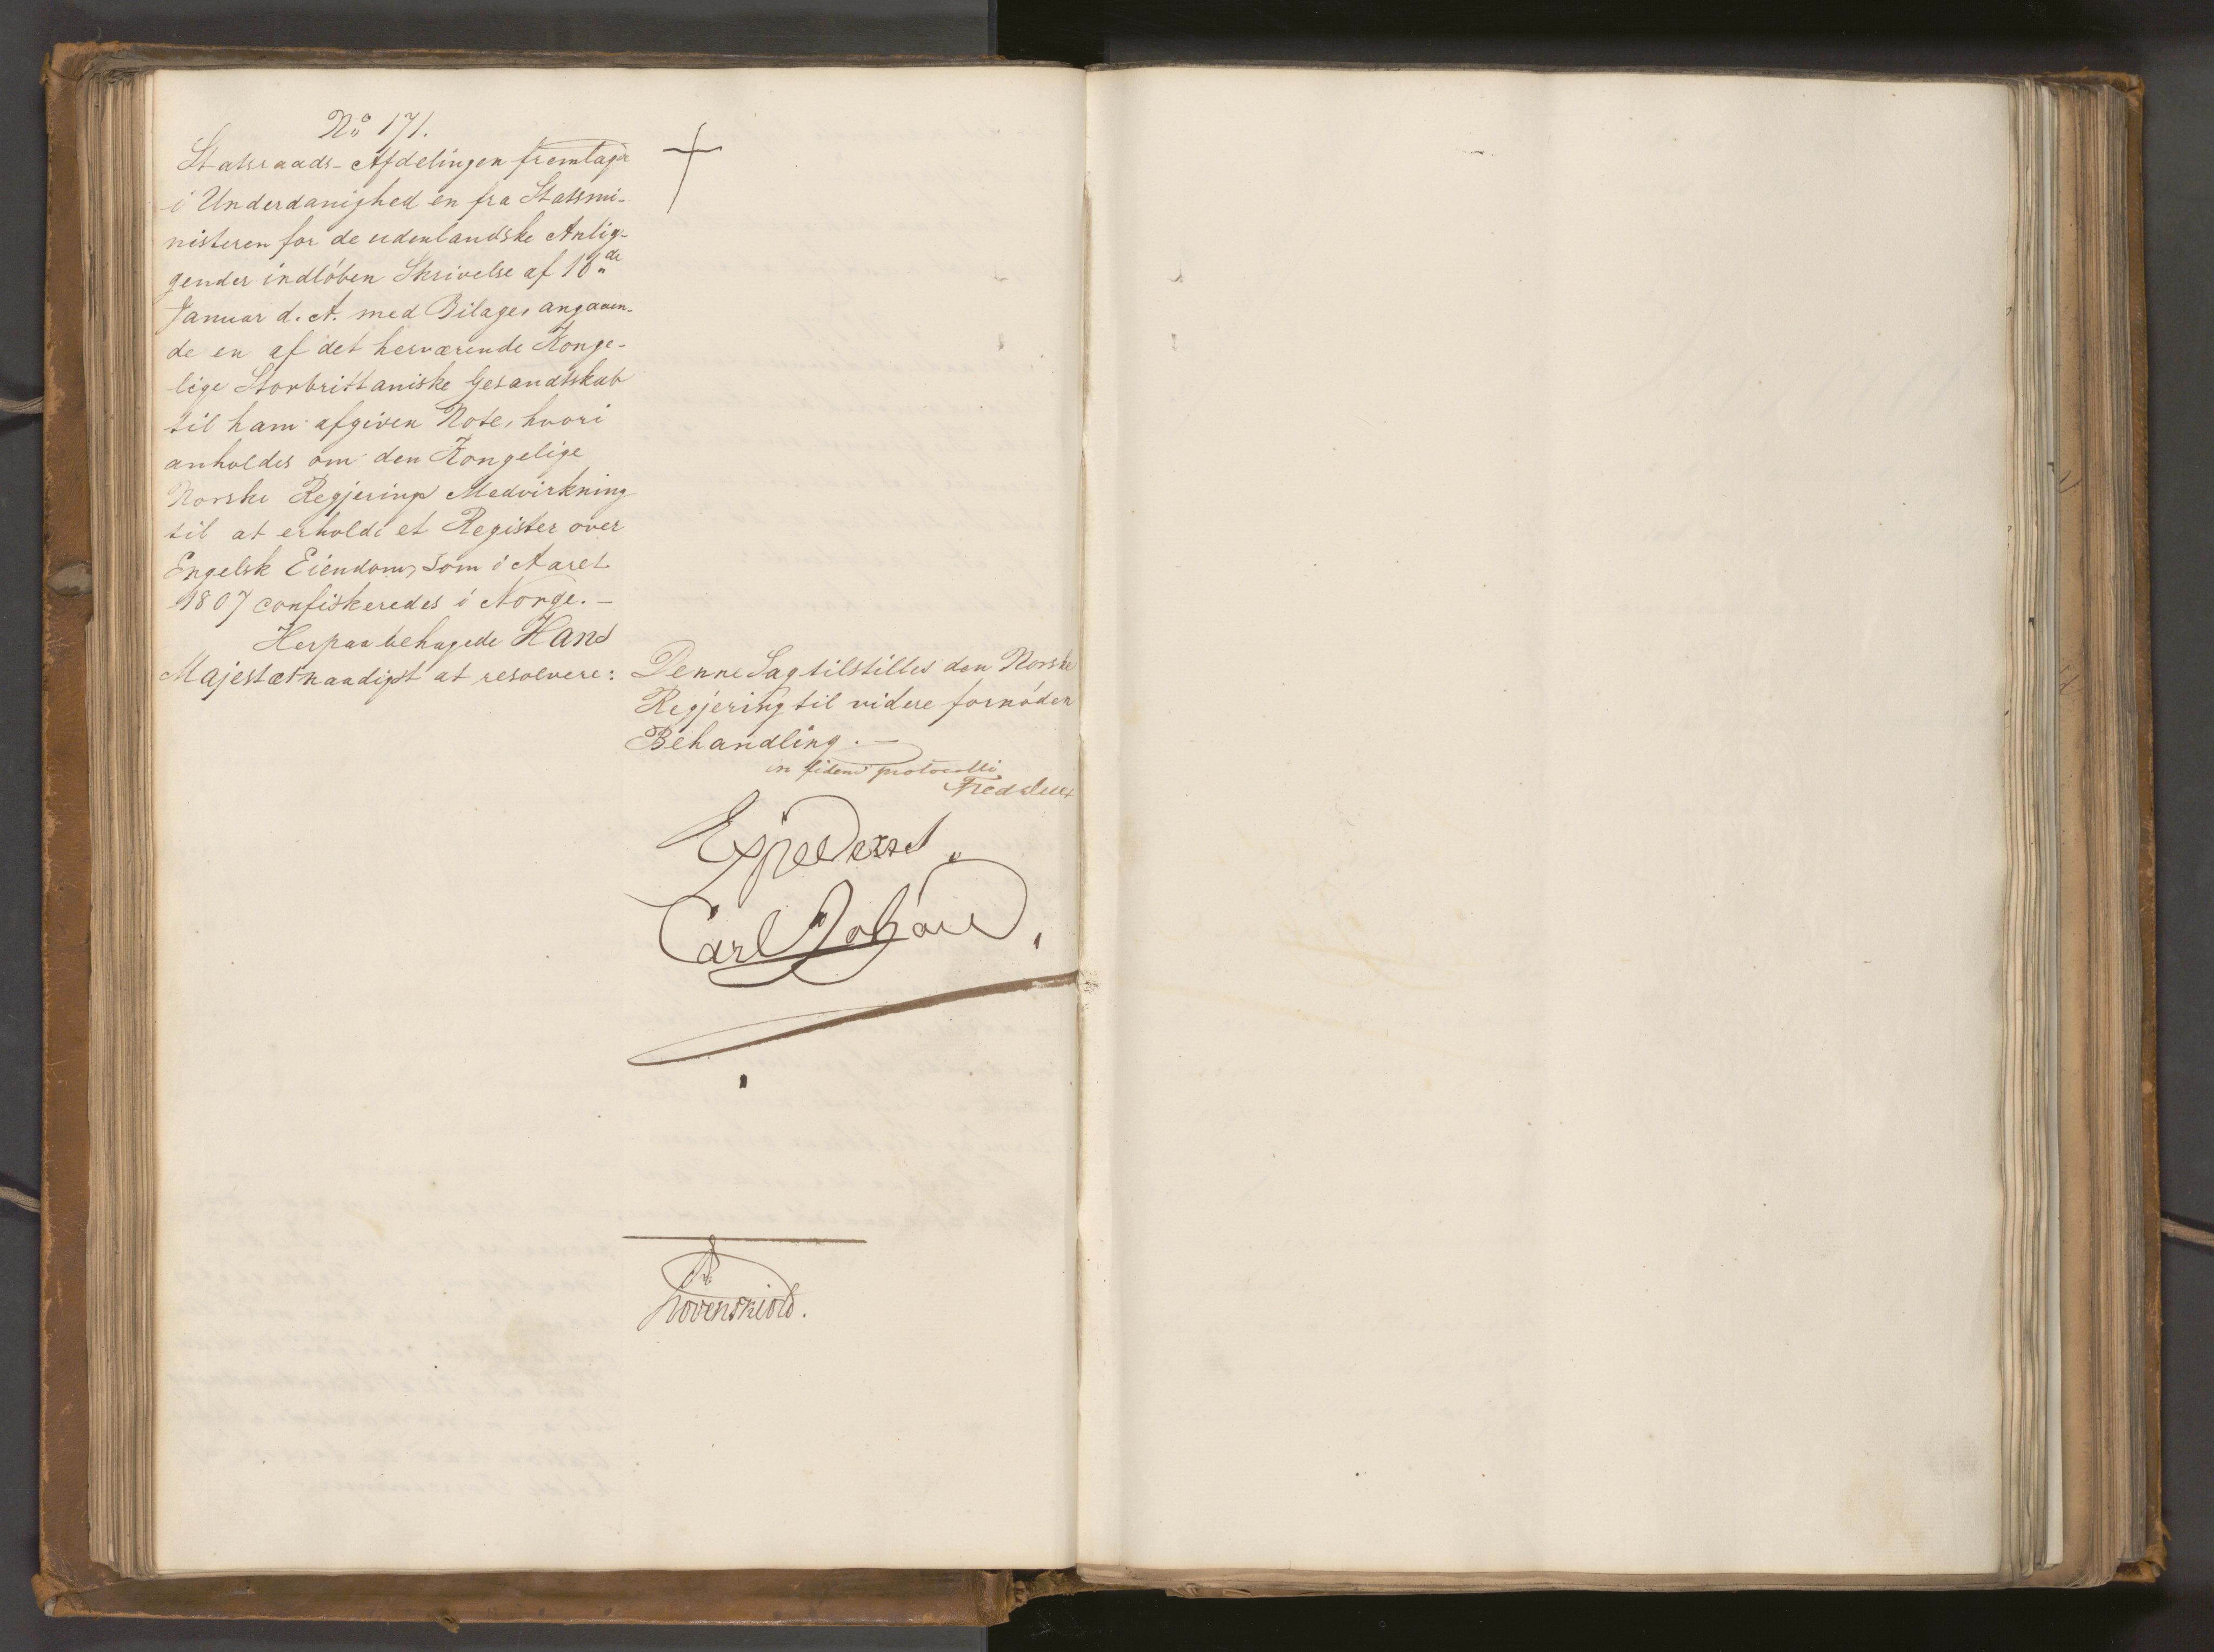 No 171.
Statsraads-Afdelingen fremlagde
i Underdanighed en fra Statsmi-
nisteren for de udenlandske Anlig-
gender indløben Skrivelse af 18de
Januar d. A. med Bilage, angaaen-
de en af det herværende Konge-
lige Storbrittaniske Gesandtskab
til ham afgiven Note, hvori
anholdes om den Kongelige
Norske Regjerings Medvirkning
til at erholde et Register over
Engelsk Eiendom, som i Aaret
1807 confiskeredes i Norge. –
Herpaa behagede Hans
Majestæt naadigst at resolvere:
Denne Sag tilstilles den Norske
Regjering til videre fornøden
Behandling. –
in fidem protocolli
Expederes
Carl Johan
Løvenskiold.